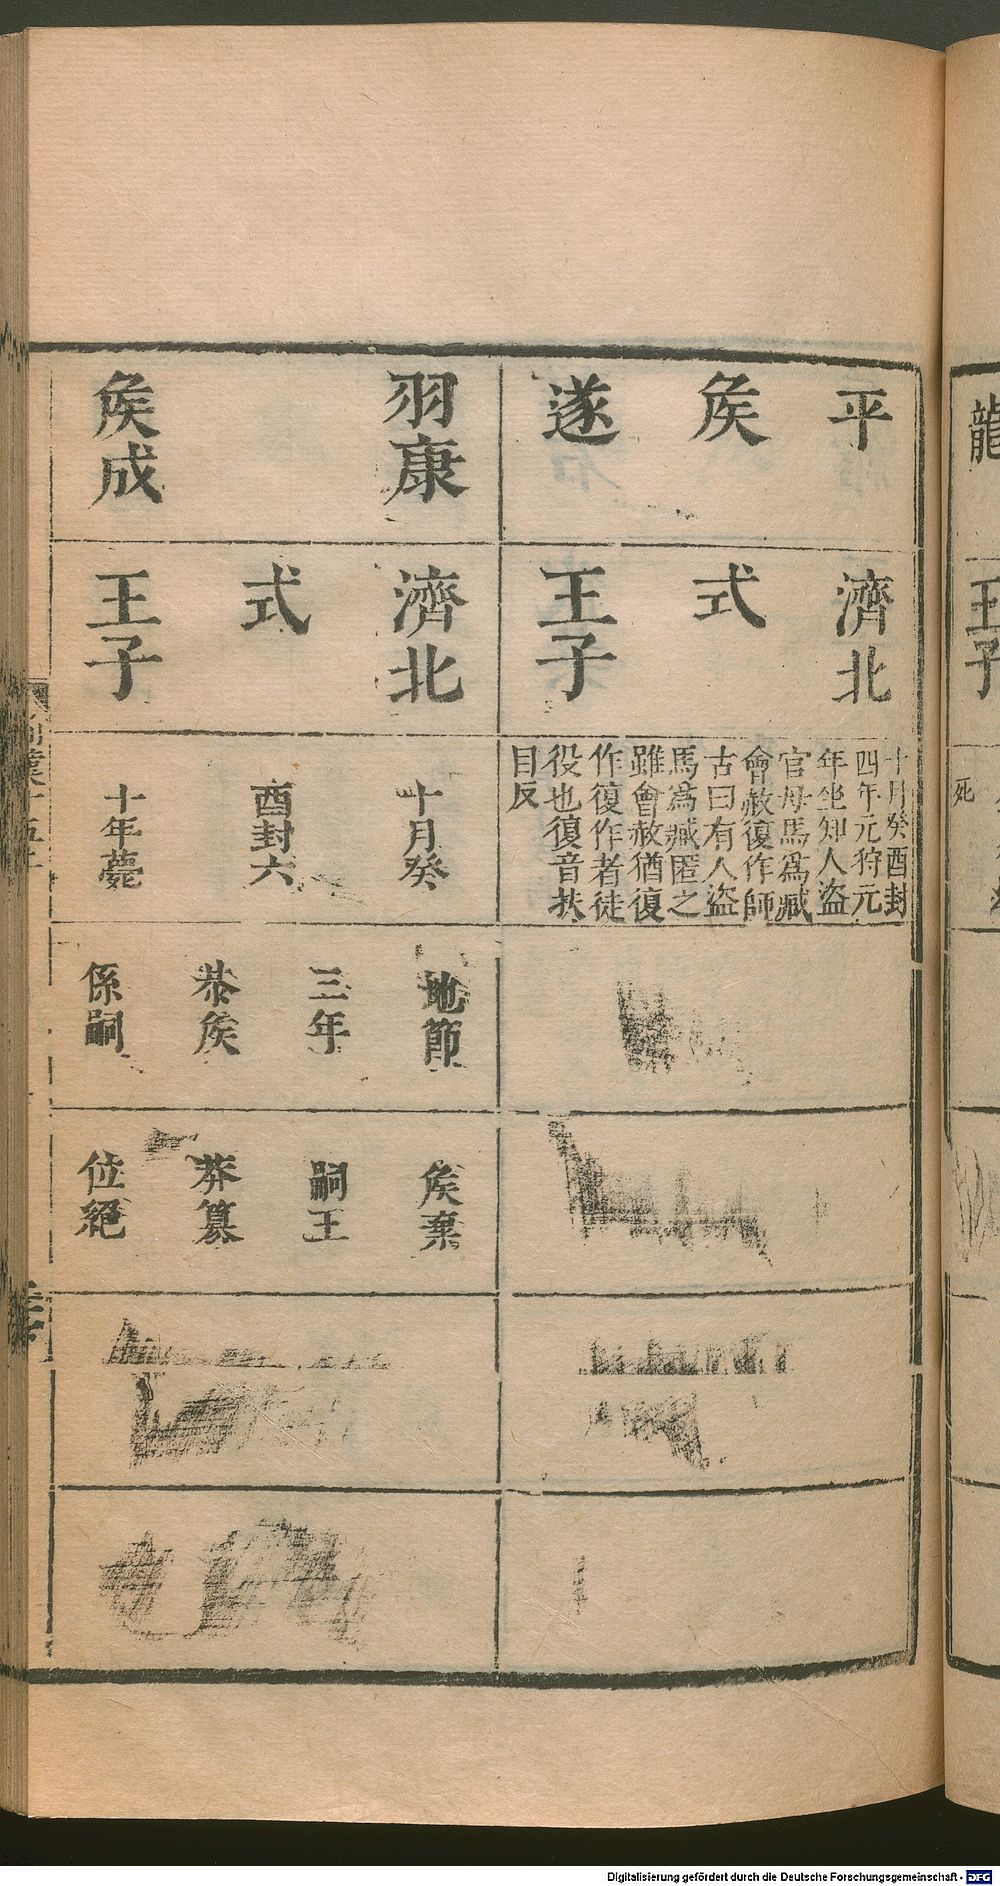 平
侯
遂
濟北
式
王子
十月癸酉封
四年元狩元
年坐知人盜
官母馬爲臧
會赦復作師
古曰有人盜
馬爲臧匿之
雖會赦猶復
作復作者徒
役也復音扶
目反
羽康
侯成
濟北
式
王子
十月癸
酉封六
十年薨
地節
三年
恭侯
係嗣
侯棄
嗣王
莽篡
位絕
龍
王子
死
Digitalisierung gefördert durch die Deutsche Forschungsgemeinschaft - DFG